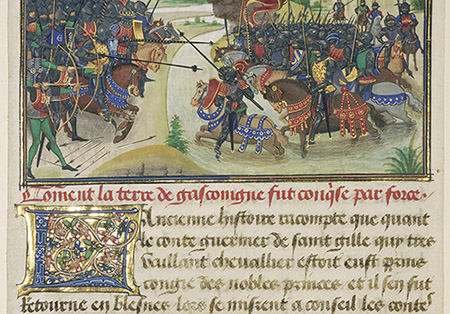 Coment la terre de gascoingne fut conq̃se par force.
L'ancienne histoire racompte que quant
le conte guermer de saint gille qui tres
vaillant chevallier estoit eust prins
congie des nobles princes et il sen fut
retourne en blesves lors se misrent a conseil les contes